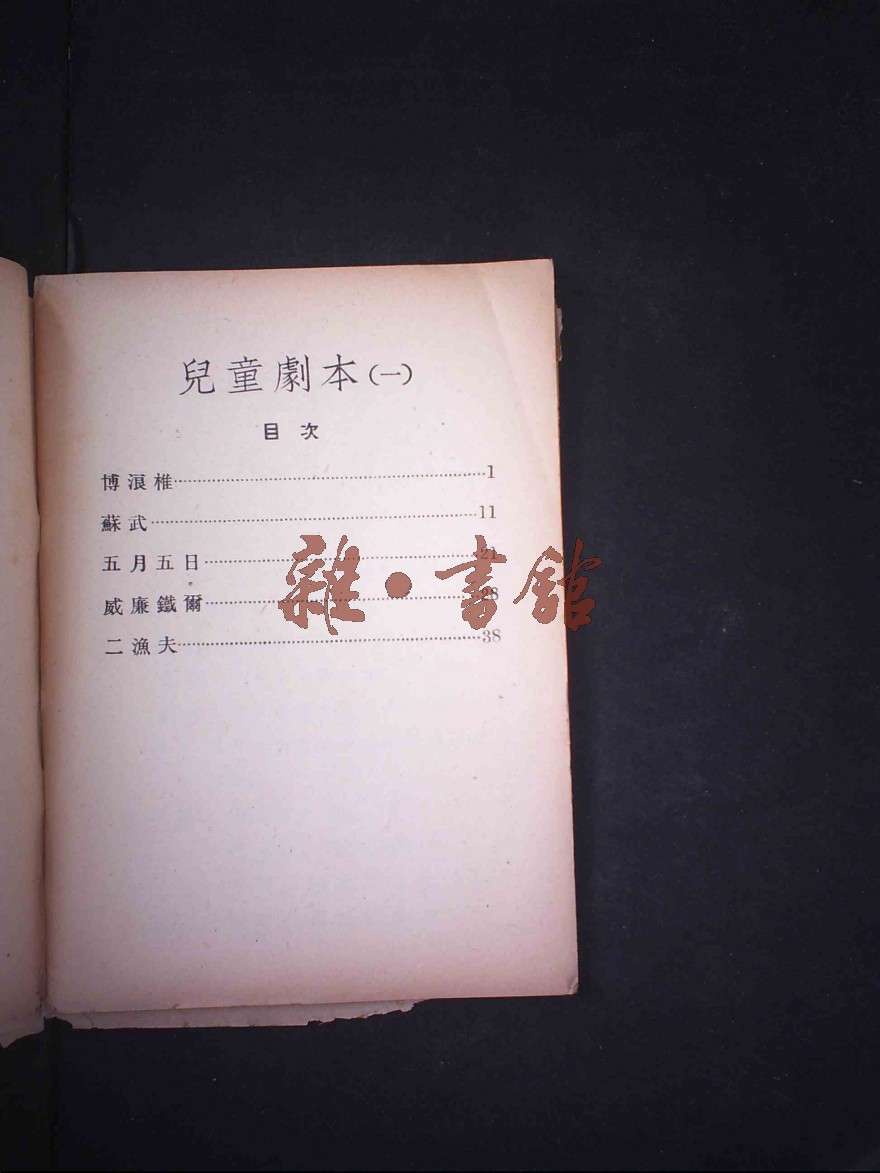 兒童劇本(一)
目次
博浪椎……1
蘇武……11
五月五日……21
威廉鐵爾……28
二漁夫……38
雜·書館